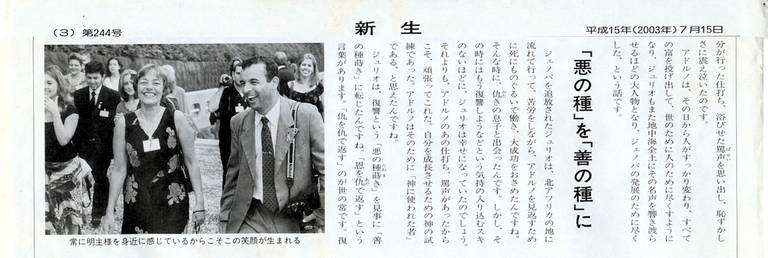 (3) 第244号
新生
平成15年(2003年)7月15日
分が行った仕打ち、浴びせた罵声を思い出し、恥ずかし
さに震え泣いたのです。
アドルノは、その日から人がすっかり変わり、すべて
の富を投げ出して、世のために人のために尽くすように
なり、ジュリオもまた地中海全土にその名声を響き渡ら
せるほどの大人物となり、ジェノバの発展のために尽く
した、という話です。
「悪の種」を「善の種」に
ジェノバを追放されたジュリオは、北アフリカの地に
流れて行って、苦労をしながら、アドルノを見返すため
に死にものぐるいで働き、大成功をおさめたんですね。
そんな時に、仇きの息子と出会ったんです。しかし、そ
の時にはもう復讐しようなどという気持の入り込むスキ
のないほどに、ジュリオは幸せになっていたのでしょう。
それよりも、アドルノのあの仕打ち、罵声があったから
こそ、頑張ってこれた。自分を成長させるための神の試
練であった。アドルノはそのために「神に使われた者」
である、と思えたんですね。
ジュリオは、復讐という「悪の種蒔き」を見事に「善
の種蒔き」に転じたんですね。「恩を仇で返す」という
言葉があります。「仇を仇で返す」のが世の常です。復
常に明主様を身近に感じているからこそこの笑顔が生まれる